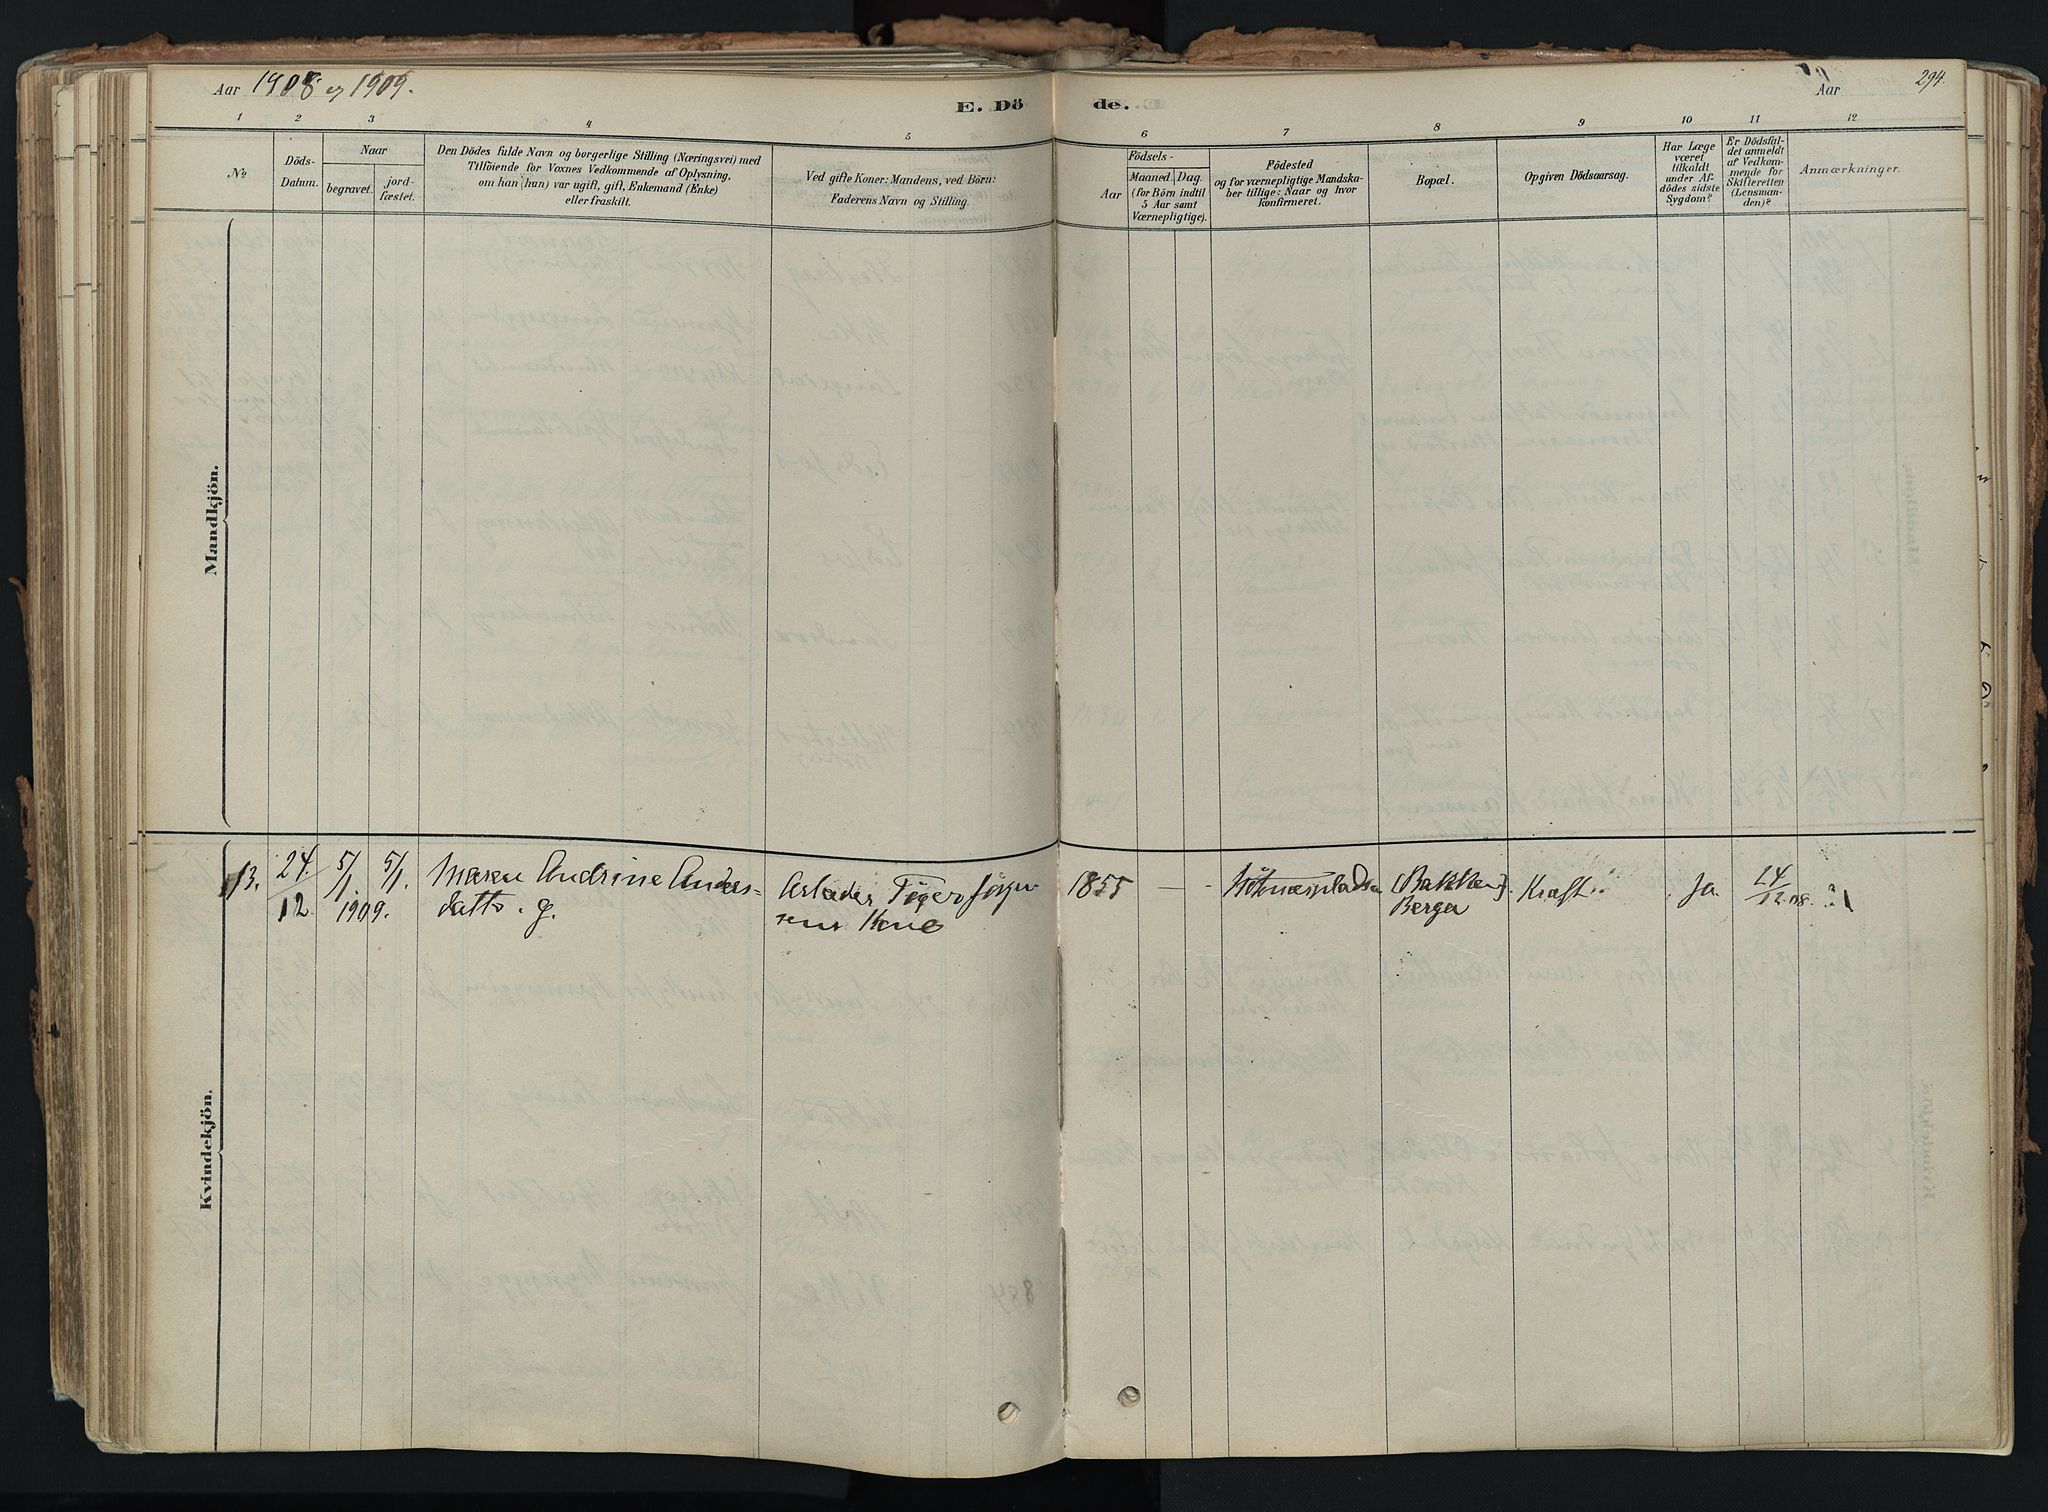 Aar 1908 og 1909.
E. Döde.
Aar
294.
1 2 3 4 5 6 7 8 9 10 11 12
No
Döds-
Datum.
Naar
begravet.
jord-
fæstet.
Den Dödes fulde Navn og borgerlige Stilling (Næringsvei) med
Tilföiende for Voxnes Vedkommende af Oplysning,
om han (hun) var ugift, gift, Enkemand (Enke)
eller fraskilt.
Ved gifte Koner: Mandens, ved Börn:
Faderens Navn og Stilling.
Födsels-
Aar
Maaned.
Dag.
(for Börn indtil
5 Aar samt
Værnepligtige).
Födested
og for værnepligtige Mandska-
ber tillige: Naar og hvor
konfirmeret.
Bopæl.
Opgiven Dödsaarsag.
Har Læge
været
tilkaldt
under Af-
dödes sidste
Sygdom?
Er Dödsfal-
det anmeldt
af Vedkom-
mende for
Skifteretten
(Lensman-
den)?
Anmærkninger.
Mandkjön.
Kvindekjön.
13.
24/12
5/1 1909.
5/1
Maren Andrine Anders-
datter. g.
Arbeider
Jörgen-
sens Kone
1855
(Bakken)
Berger
Kræft
Ja
24/12 08.